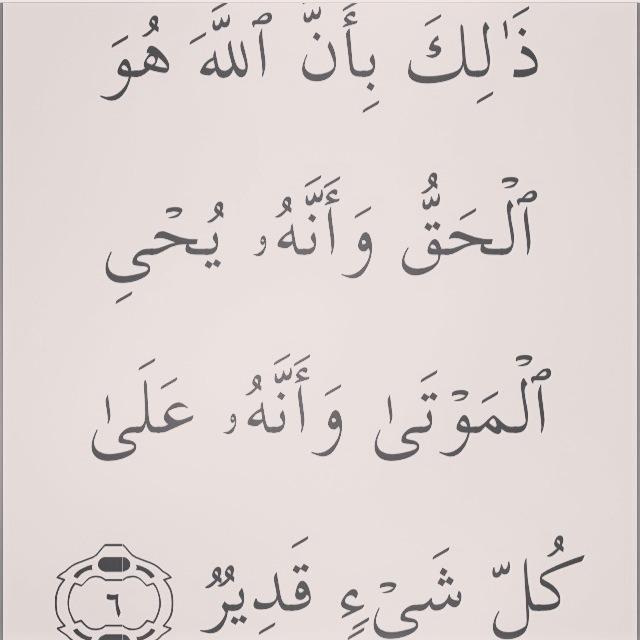 ذَٰلِكَ بِأَنَّ ٱللَّهَ هُوَ
ٱلْحَقُّ وَأَنَّهُۥ يُحْىِ
ٱلْمَوْتَىٰ وَأَنَّهُۥ عَلَىٰ
كُلِّ شَىْءٍ قَدِيرٌ ٦